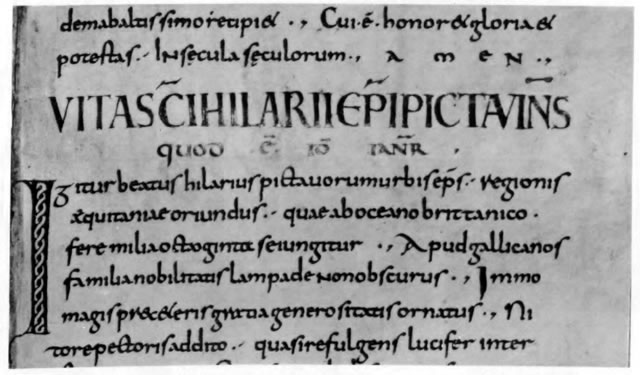 dem ab altissimo recipi& ., Cui ē honor & gloria &
potestas. In sęcula sęculorum., A M E N .,
VITA SC̄I HILARII EP̄I PICTAVIN̄S
QUOD Ē ID̄ IANR̄ .
Igitur beatus hilarius pictavorum urbis ep̄s. regionis
aequitaniae oriundus. quae ab oceano brittanico.
fere milia octoginta seiungitur ., Apud gallicanos
familia nobilitatis lampade non obscurus ., Immo
magis gratia generositatis ornatus., Ni
tore pectoris addito. quasi refulgens lucifer inter